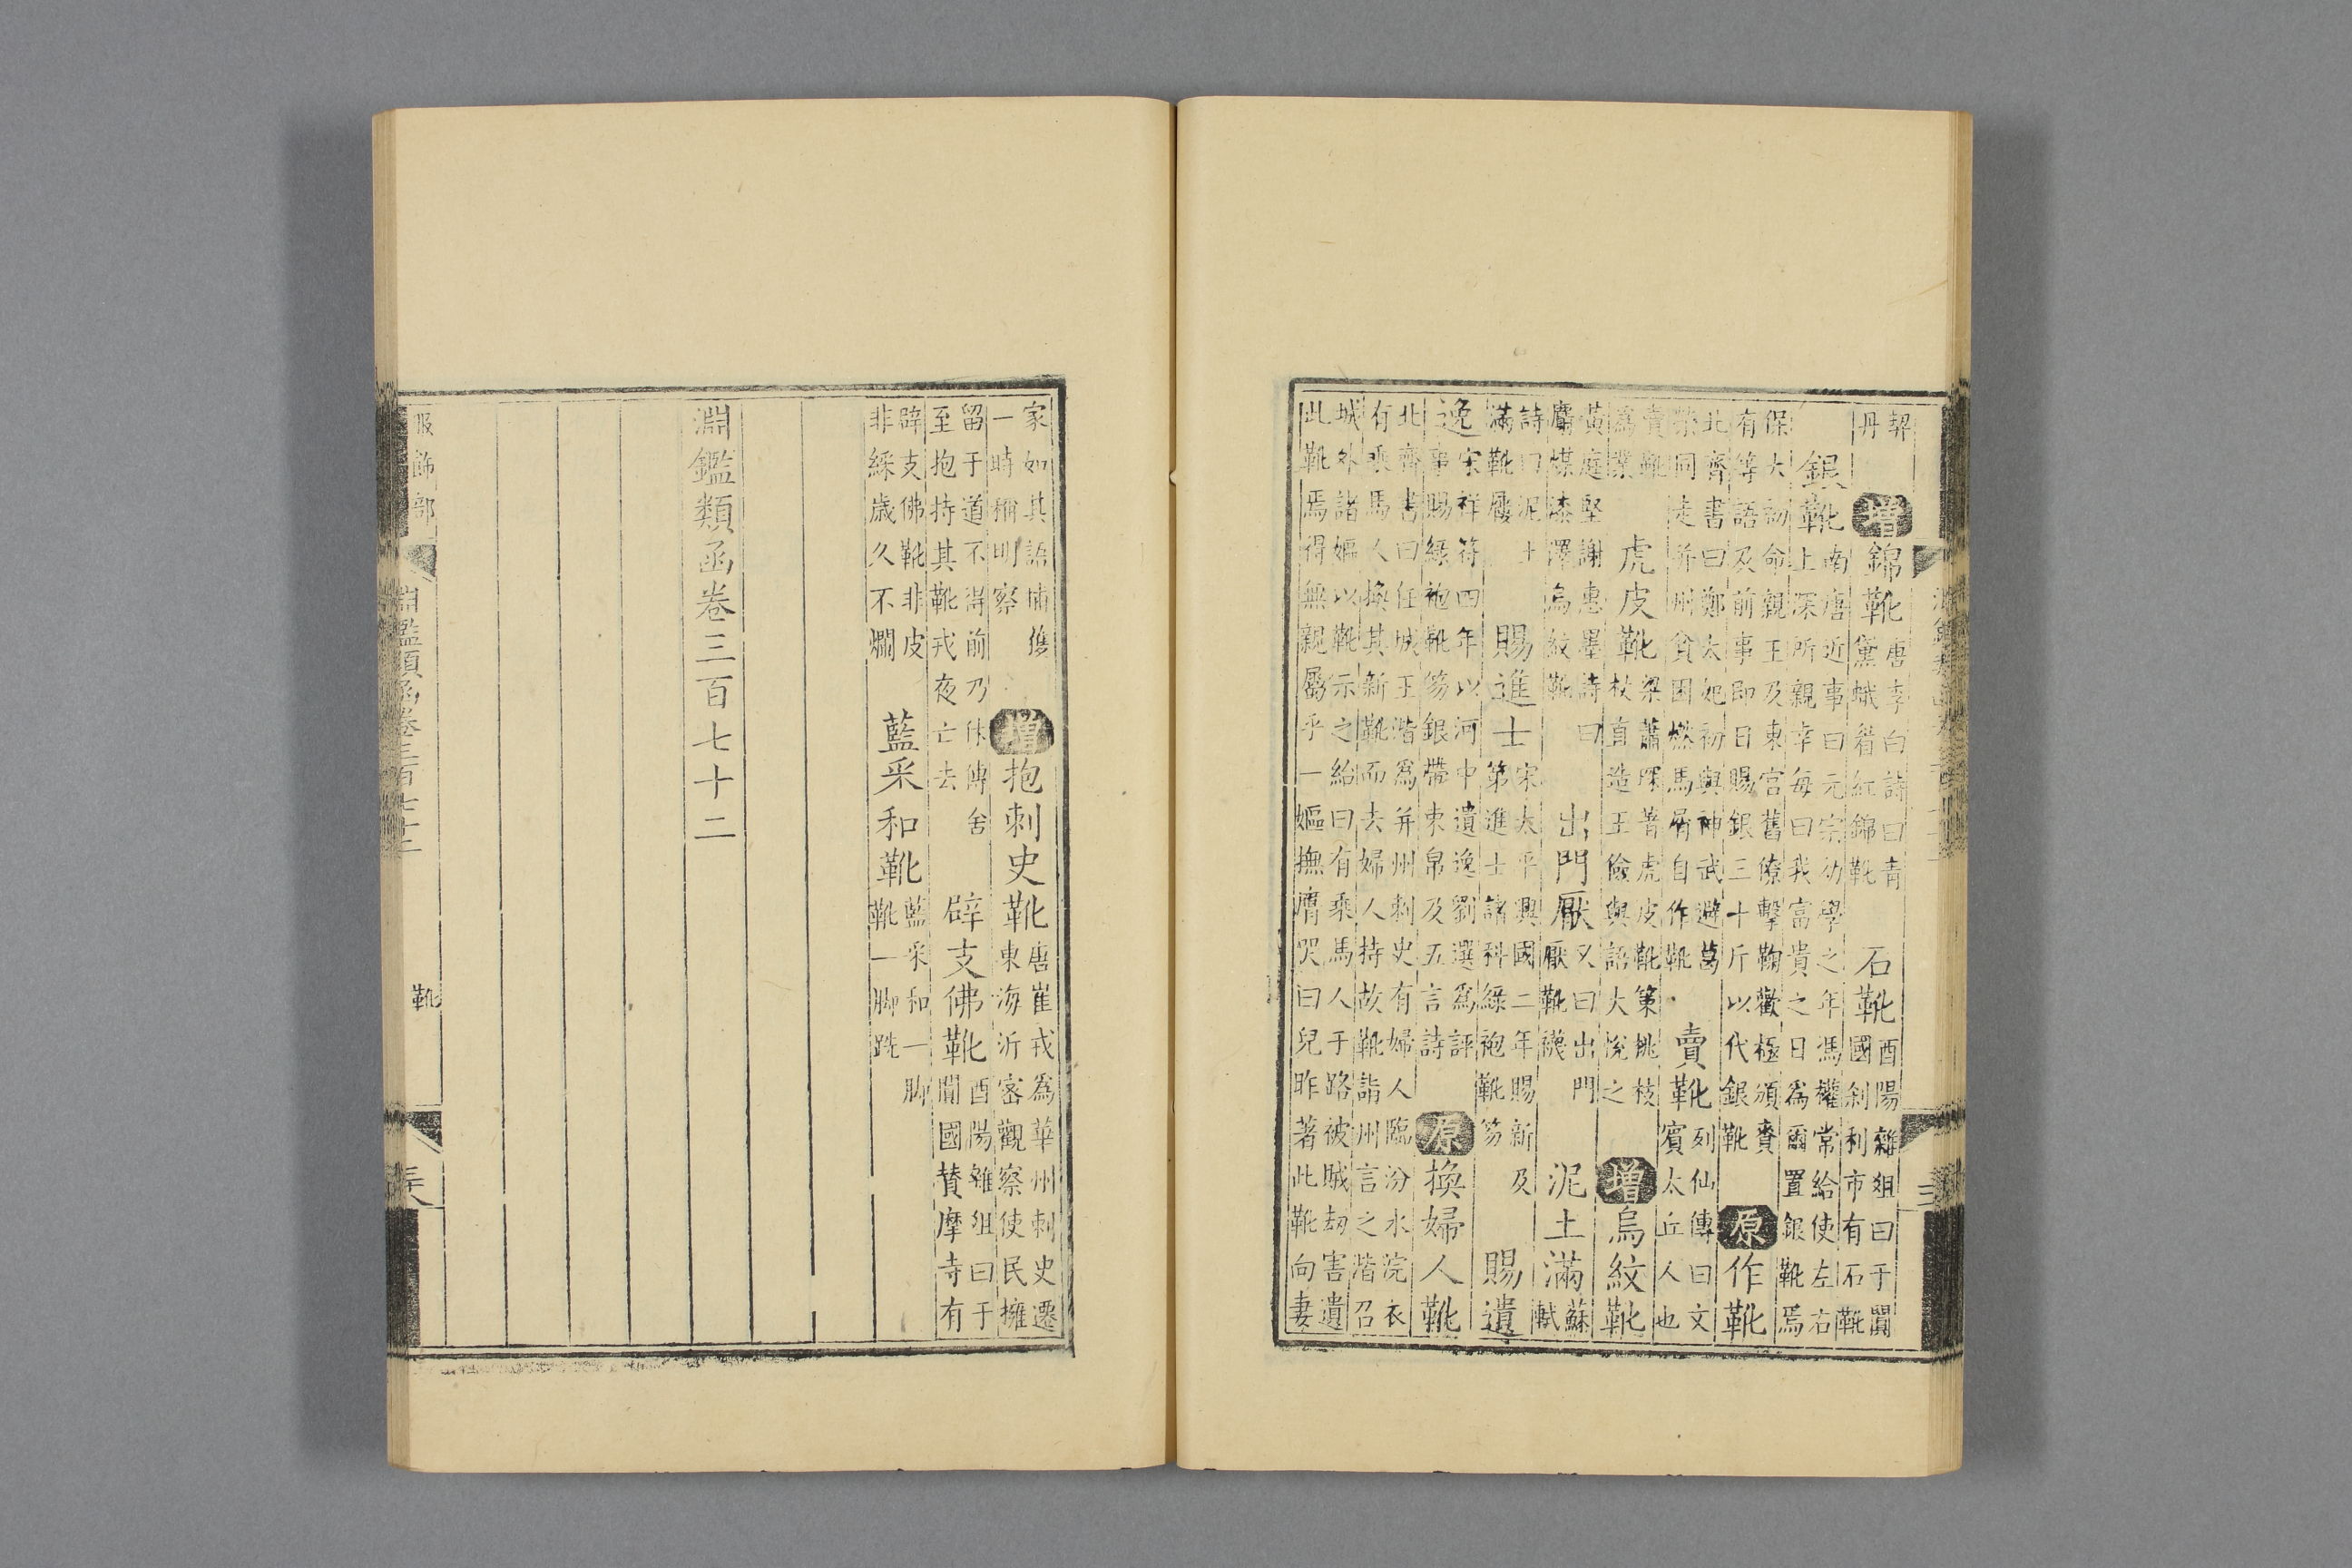 契丹增錦靴唐李白詩曰青黛蛾着紅錦靴石靴酉陽雜俎曰于闐國刹利市有石靴
銀靴南唐近事曰元宗幼學之年馮權常給使左右上深所親幸每曰我富貴之日爲爾置銀靴焉
保大初命親王及東宮舊僚擊鞠歡極頒賚有等語及前事即日賜銀三十斤以代銀靴原作靴
北齊書曰鄭太妃初與神武避葛榮同走并州貧困燃馬屑自作靴賣靴列仙傳曰文賓太丘人也
賣靴爲業虎皮靴梁蕭琛著虎皮靴策桃枝杖直造王儉與語大悅之增烏紋靴
黃庭堅謝惠墨詩曰麝煤漆澤烏紋靴出門厭又曰出門厭靴襪泥土滿蘇軾
詩曰泥土滿靴屨賜進士宋太平興國二年賜新及第進士諸科綠袍靴笏賜遺
逸宋祥符四年以河中遺逸劉選爲評事賜綠袍靴笏銀帶束帛及五言詩原換婦人靴
北齊書曰任城王湝爲并州刺史有婦人臨汾水浣衣有乘馬人換其新靴而去婦人持故靴詣州言之湝召
城外諸嫗以靴示之紿曰有乘馬人于路被賊刼害遺此靴焉得無親屬乎一嫗撫膺哭曰兒昨著此靴向妻
家如其語捕獲一時稱明察增抱刺史靴唐崔戎爲華州刺史遷東海沂密觀察使民擁
留于道不得前乃休傳舍至抱持其靴戎夜亡去辟支佛靴酉陽雜俎曰于闐國贊摩寺有
辟支佛靴非皮非綵歳久不爛藍采和靴藍采和一脚靴一脚跣
淵鑑類函卷三百七十二
服飾部 淵鑑類函卷三百七十二 靴